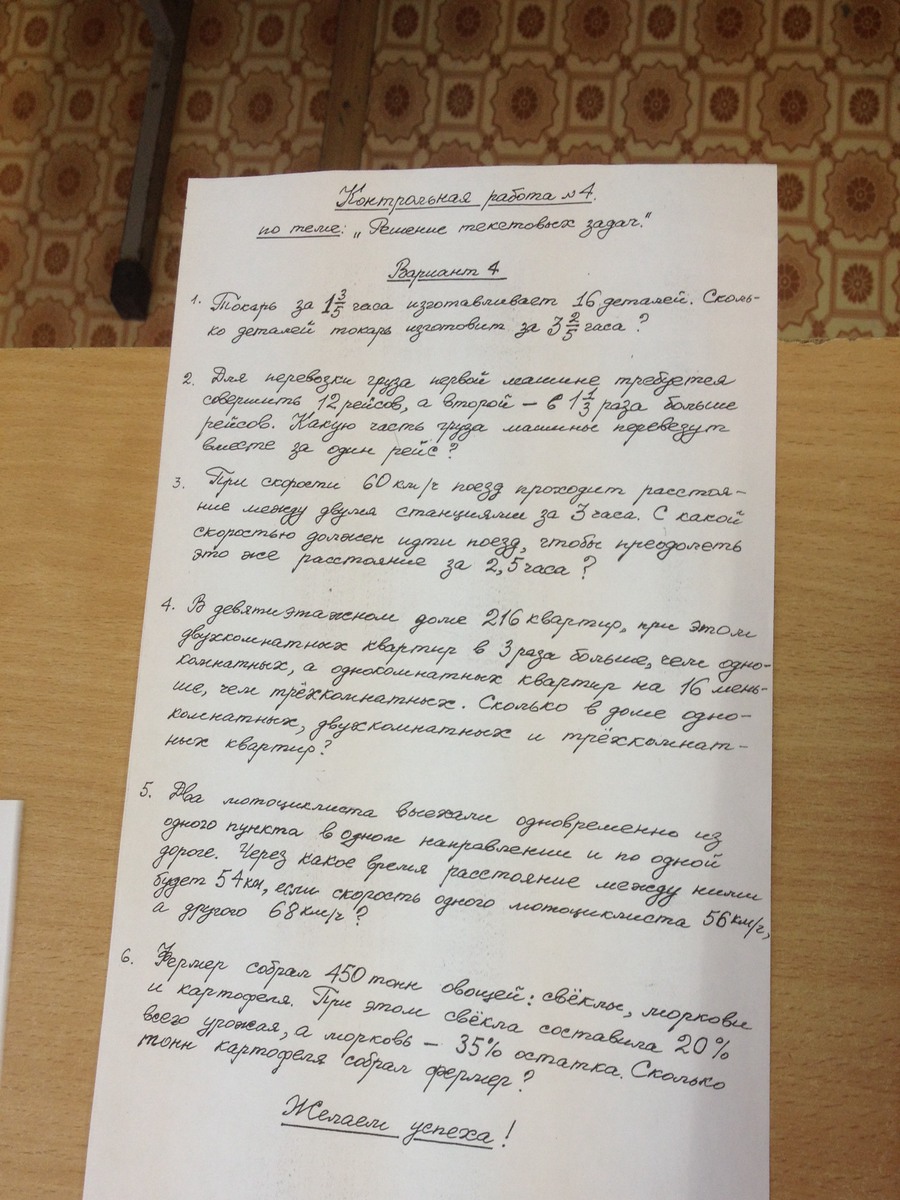 Контрольная работа №4.
по теме: „Решение текстовых задач."
Вариант 4
1. Токарь за 1 3/5 часа изготавливает 16 деталей. Сколь-
ко деталей токарь изготовит за 3 2/5 часа?
2. Для перевозки груза первой машине требуется
совершить 12 рейсов, а второй – в 1 1/3 раза больше
рейсов. Какую часть груза машины перевезут
вместе за один рейс?
3. При скорости 60 км/ч поезд проходит расстоя-
ние между двумя станциями за 3 часа. С какой
скоростью должен идти поезд, чтобы преодолеть
это же расстояние за 2,5 часа?
4. В девятиэтажном доме 216 квартир, при этом
двухкомнатных квартир в 3 раза больше, чем одно-
комнатных, а однокомнатных квартир на 16 мень-
ше, чем трёхкомнатных. Сколько в доме одно-
комнатных, двухкомнатных и трёхкомнат-
ных квартир?
5. Два мотоциклиста выехали одновременно из
одного пункта в одном направлении и по одной
дороге. Через какое время расстояние между ними
будет 54 км, если скорость одного мотоциклиста 56 км/ч,
а другого 68 км/ч?
6. Фермер собрал 450 тонн овощей: свёклы, моркови
и картофеля. При этом свёкла составила 20%
всего урожая, а морковь – 35% остатка. Сколько
тонн картофеля собрал фермер?
Желаем успеха!